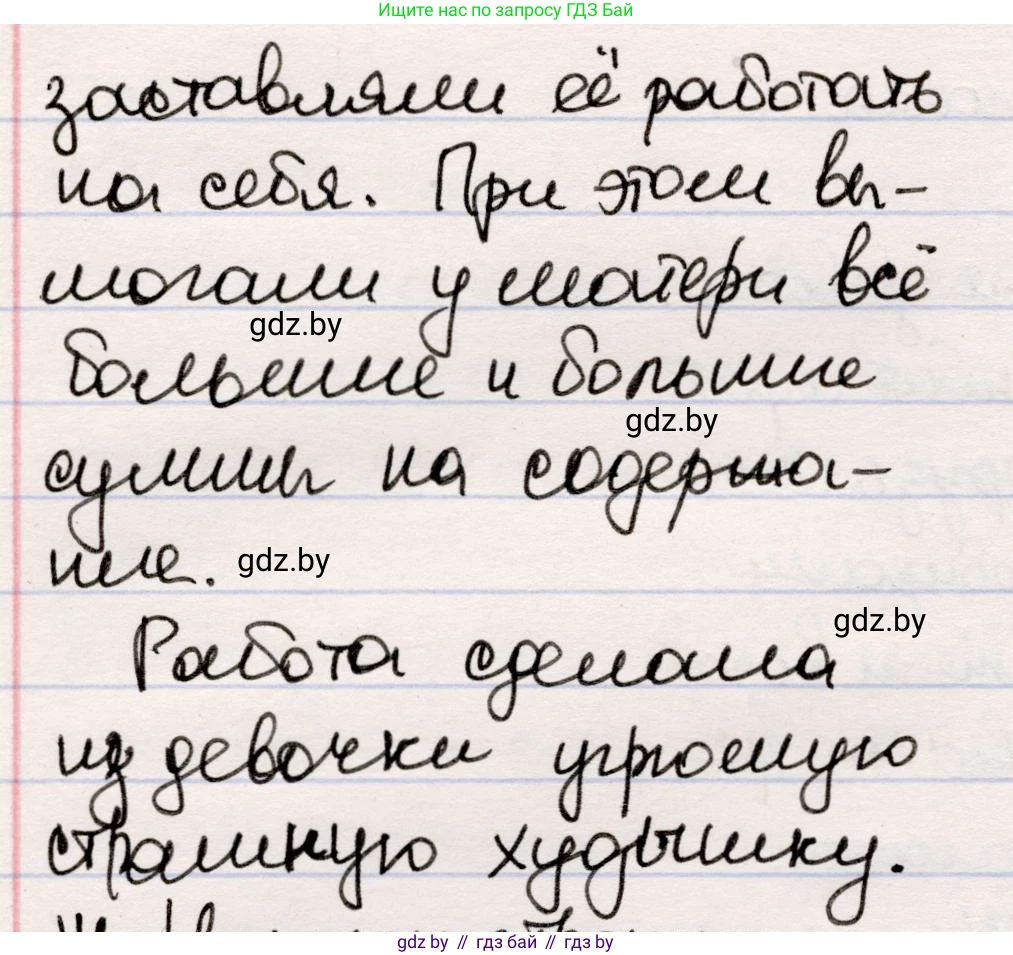 Ищите нас по запросу ГДЗ Бай
заставляли её работать
на себя. При этом вы-
могали у матери всё
gdz.by
большие и большие
gdz.by
суммы на содержа-
ние. gdz.by
gdz.by
Работа сделала
из девочки угрюмую
страшную худышку.
gdz by // гдз бай // gdz by